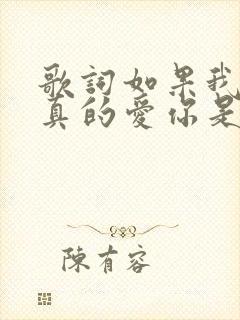 歌詞如果我
真的愛你是
陳有容